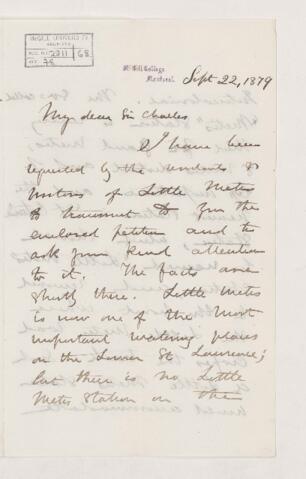 McGILL UNIVERSITY
ARCHIVES
ACC. NO. 2211 / 68
REF. 38
McGill College
Montreal.
Sept 22, 1879
My dear Sir Charles
I have been
requested by the residents &
visitors of Little Metis
to transmit to you the
enclosed petition and to
ask your kind attention
to it. The facts are
shortly these. Little Metis
is now one of the most
important watering places
on the Lower St. Lawrence;
but there is no Little
Metis Station on the